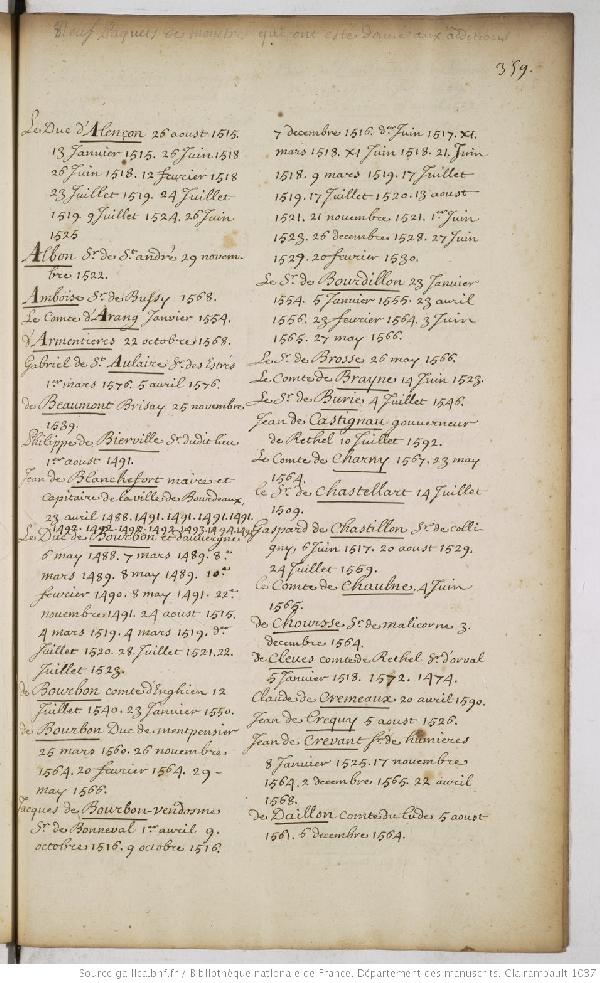 Neuf Paquets de monstres qui ont esté donné aux additions
359.
Le Duc d'Alençon 26 aoust 1515.
13 Janvier 1515. 26 Juin 1518
26 Juin 1518. 12 fevrier 1518
23 Juillet 1519. 24 Juillet
1519 9 Juillet 1524. 26 Juin
1525
Albon Sr. de St. andré 29 novem-
bre 1522.
Amboise Sr. de Bussy 1568.
Le Comte d'Arang Janvier 1554.
d'Armentieres 22 octobre 1568.
Gabriel de St. Aulaire Sr. des Estrés
1er mars 1576. 5 avril 1576.
de Beaumont Brisay 25 novembre
1539.
Philippe de Bierville Sr. dudit lieu
1er aoust 1491.
Jean de Blanchefort maire et
capitaine de la ville de Bourdeaux,
23 avril 1488. 1491. 1491. 1491. 1491.
1492. 1492. 1492. 1493. 1493. 1494. 1494
Le Duc de Bourbon et d'auvergne
6 may 1488. 7 mars 1489. 8e
mars 1489. 8 may 1489. 10e
fevrier 1490. 8 may 1491. 22e
novembre 1491. 24 aoust 1515.
4 mars 1519. 4 mars 1519. der
Juillet 1520. 28 Juillet 1521. 22.
Juillet 1523.
de Bourbon comte d'Enghien 12
Juillet 1540. 23 Janvier 1550.
de Bourbon Duc de montpensier
25 mars 1560. 26 novembre
1564. 20 fevrier 1564. 29
may 1566.
Jacques de Bourbon-vendosme
Sr. de Bonneval 1er avril 9.
octobre 1516. 9 octobre 1516.
7 decembre 1516. der Juin 1517. XI.
mars 1518. XI Juin 1518. 21. Juin
1518. 9 mars 1519. 17 Juillet
1519. 17 Juillet 1520. 13 aoust
1521. 21 novembre 1521. 1er Juin
1523. 26 decembre 1528. 27 Juin
1529. 20 fevrier 1530.
Le Sr. de Bourdillon 23 Janvier
1554. 5 Janvier 1555. 23 avril
1556. 23 fevrier 1564. 3 Juin
1565. 27 may 1566.
Le Sr. de Brosse 26 may 1566.
Le Comte de Brayne 14 Juin 1523.
Le Sr. de Burie 4 Juillet 1546.
Jean de Castignau gouverneur
de Rethel 10 Juillet 1592.
Le Comte de Charny 1567. 23 may
1564.
le Sr. de Chastellart 14 Juillet
1509.
Gaspard de Chastillon Sr. de colli-
gny, 6 Juin 1517. 20 aoust 1529.
24 Juillet 1559.
le Comte de Chaulne 4 Juin
1565.
de Chourses Sr. de malicorne 3.
decembre 1564.
de Cleves comte de Rethel Sr. d'orval
5 Janvier 1518. 1572. 1474.
Claude de Cremeaux 20 avril 1590.
Jean de Crequy 5 aoust 1526.
Jean de Crevant Sr. de humieres
8 Janvier 1525. 17 novembre
1564. 2 decembre 1565. 22 avril
1568.
de Daillon comte du lude 5 aoust
1561. 6 decembre 1564.
Source gallica.bnf.fr / Bibliothèque nationale de France. Département des manuscrits. Clairambault 1037